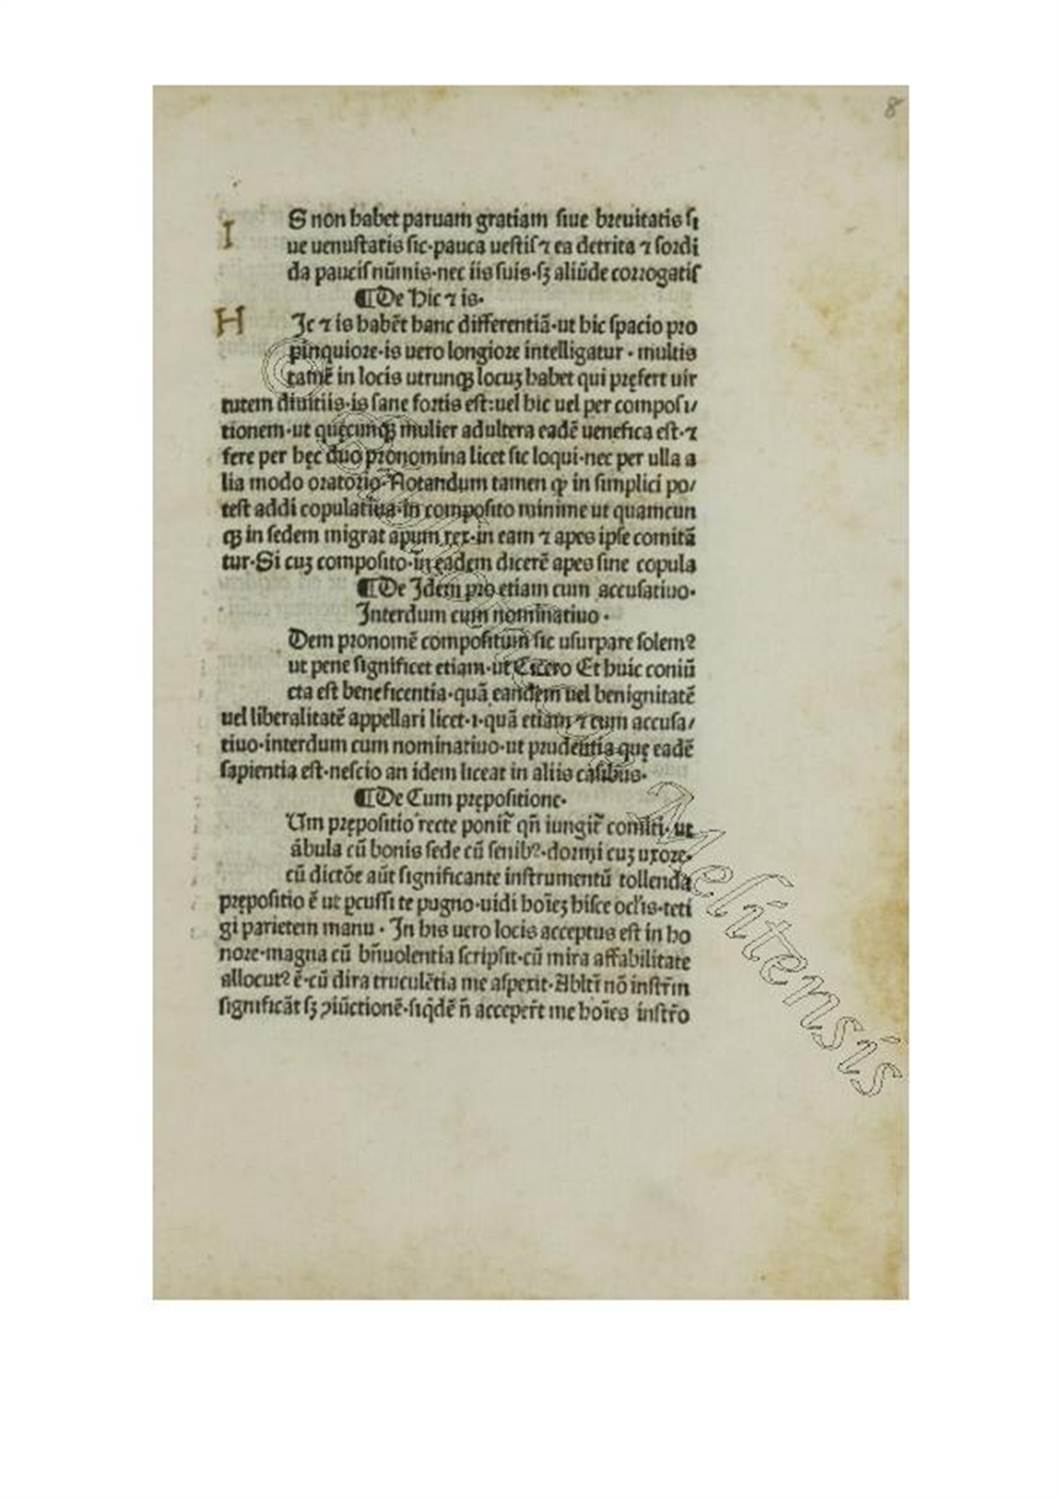 8
I S non habet paruam gratiam siue breuitatis si
ue uenustatis sic·pauca uestis ⁊ ea detrita ⁊ sordi
da paucis nūmis·nec iis suis·sꝫ aliūde corrogatis
¶De Hic ⁊ is·
H Ic ⁊ is habēt hanc differentiā·ut hic spacio pro
pinquiore·is uero longiore intelligatur·multis
tamē in locis utrunqꝫ locuꝫ habet qui pręfert uir
tutem diuitiis·is sane fortis est:uel hic uel per composi/
tionem·ut quęcunqꝫ mulier adultera eadē uenefica est·⁊
fere per hęc duo pronomina licet sic loqui·nec per ulla a
lia modo oratorio·Notandum tamen ꝙ in simplici po/
test addi copulatiua·in composito minime ut quamcun
qꝫ in sedem migrat apum rex·in eam ⁊ apes ipse comitā
tur·Si cuꝫ composito·in eadem dicerē apes sine copula
¶De Idem pro etiam cum accusatiuo·
Interdum cum nominatiuo·
Dem pronomē compositum sic usurpare solemꝰ
ut pene significet etiam·ut Cicero Et huic coniū
cta est beneficentia·quā eandem uel benignitatē
uel liberalitatē appellari licet·i·quā etiam ⁊ cum accusa/
tiuo·interdum cum nominatiuo·ut prudentia quę eadē
sapientia est·nescio an idem liceat in aliis casibus·
¶De Cum prępositione·
Um prępositio recte ponit̃ qñ iungit̃ comiti·ut
ābula cū bonis sede cū senibꝰ·dormi cuꝫ uxore·
cū dictōe aūt significante instrumentū tollenda
prępositio ē ut ꝑcussi te pugno·uidi hoīeꝫ hisce ocłis·teti
gi parietem manu·In his uero locis acceptus est in ho
nore·magna cū bñuolentia scripsit·cū mira affabilitate
allocutꝰ ē·cū dira truculētia me aspexit·Ablti nō instrm
significāt sꝫ ꝯiūctionē·siqͥdē ñ acceperr̃t me hoīes instr̃o
Melitensis